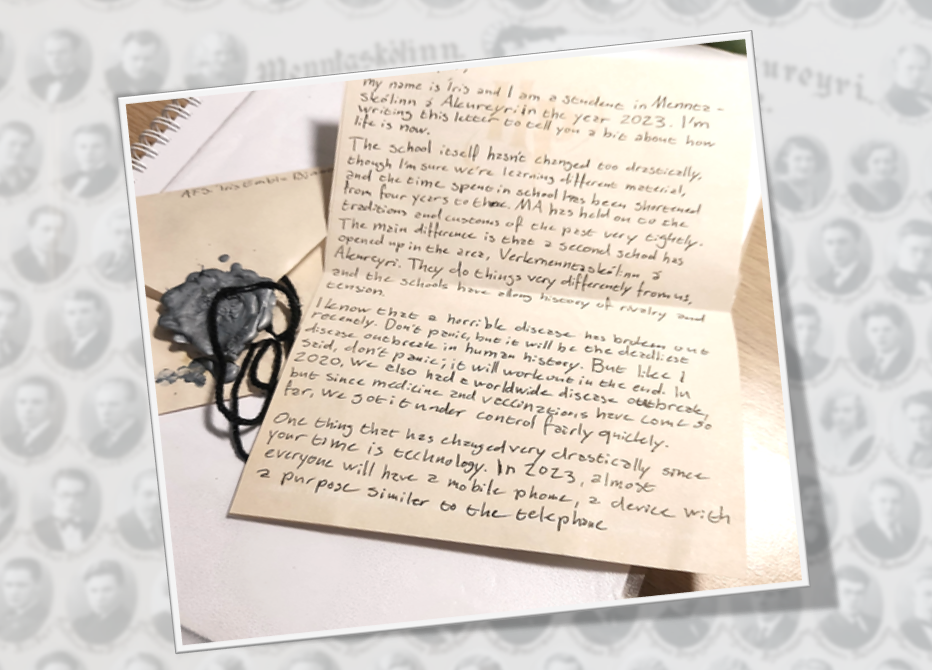 Menntaskólinn
ureyri.
AFS
my name is Íris and I am a student in Mennta-
skólinn á Akureyri in the year 2023. I'm
writing this letter to tell you a bit about how
life is now.
The school itself hasn't changed too drastically,
though I'm sure we're learning different material,
and the time spent in school has been shortened
from four years to three. MA has held on to the
traditions and customs of the past very tightly.
The main difference is that a second school has
opened up in the area, Verkmenntaskólinn á
Akureyri. They do things very differently from us,
and the schools have a long history of rivalry and
tension.
I know that a horrible disease has broken out
recently. Don't panic, but it will be the deadliest
disease outbreak in human history. But like I
said, don't panic; it will work out in the end. In
2020, we also had a worldwide disease outbreak,
but since medicine and vaccinations have come so
far, we got it under control fairly quickly.
One thing that has changed very drastically since
your time is technology. In 2023, almost
everyone will have a mobile phone, a device with
a purpose similar to the telephone